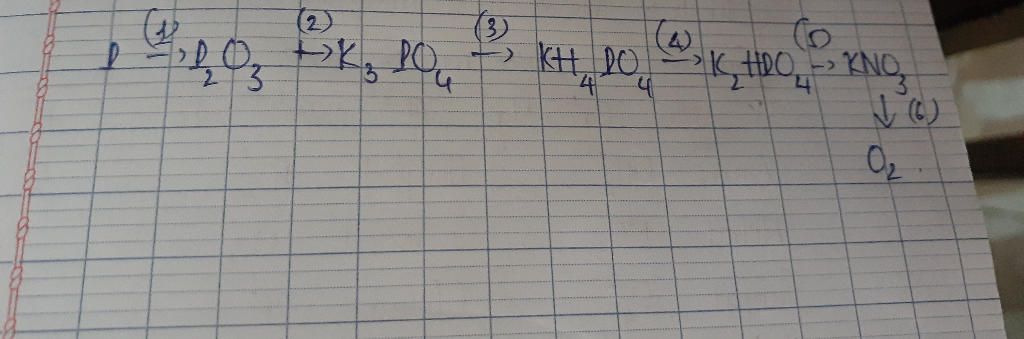 P (1)→ P2O3 (2)→ K3 PO4 (3)→ KH4PO4 (4)→ K2HPO4 (5)→ KNO3
↓ (6)
O2.